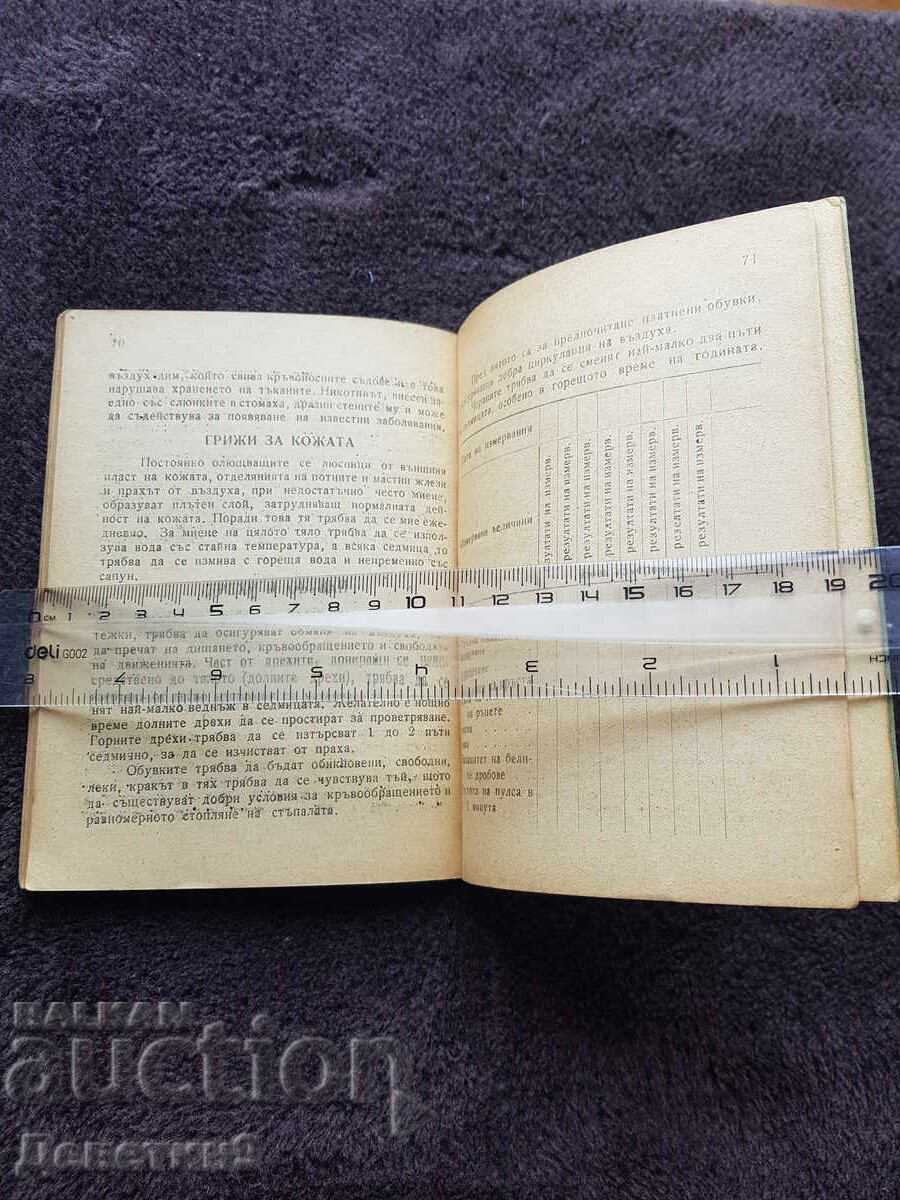 70
въздух дим, който свива кръвоносните съдове и с това
нарушава храненето на тъканите. Никотинът, внесен за-
едно със слюнките в стомаха, дразни стените му и може
да съдействува за появяване на известни заболявания.
ГРИЖИ ЗА КОЖАТА
Постоянно олющващите се люспици от външния
пласт на кожата, отделянията на потните и мастни жлези
и прахът от въздуха, при недостатъчно често миене,
образуват плътен слой, затрудняващ нормалната дей-
ност на кожата. Поради това тя трябва да се мие еже-
дневно. За миене на цялото тяло трябва да се изпол-
зува вода със стайна температура, а всяка седмица то
трябва да се измива с гореща вода и непременно със
сапун.
тежки, трябва да осигуряват обмяна на въздуха,
да пречат на дишането, кръвообращението и свободата
на движенията. Част от дрехите, допиращи се
средствено до тялото (долните дрехи), трябва да се
нят най-малко веднъж в седмицата. Желателно е нощно
време долните дрехи да се простират за проветряване.
Горните дрехи трябва да се изтърсват 1 до 2 пъти
седмично, за да се изчистват от праха.
Обувките трябва да бъдат обикновени, свободни,
леки, кракът в тях трябва да се чувствува тъй, щото
да съществуват добри условия за кръвообращението и
равномерното стопляне на стъпалата.
71
През лятото са за предпочитане платнени обувки,
добра циркулация на въздуха.
Чорапите трябва да се сменят най-малко два пъти
седмицата, особено в горещото време на годината.
Дата на измервания
Измервани величини
резултати на измерв.
резултати на измерв.
резултати на измерв.
резултати на измерв.
резултати на измерв.
резултати на измерв.
резултати на измерв.
резултати на измерв.
на ръцете
на бели-
те дробове
на пулса в
минута
0 см 1 2 3 4 5 6 7 8 9 10 11 12 13 14 15 16 17 18 19 20
deli G002
8 7 6 5 4 3 2 1 INCH
BALKAN
auction
Деветкий